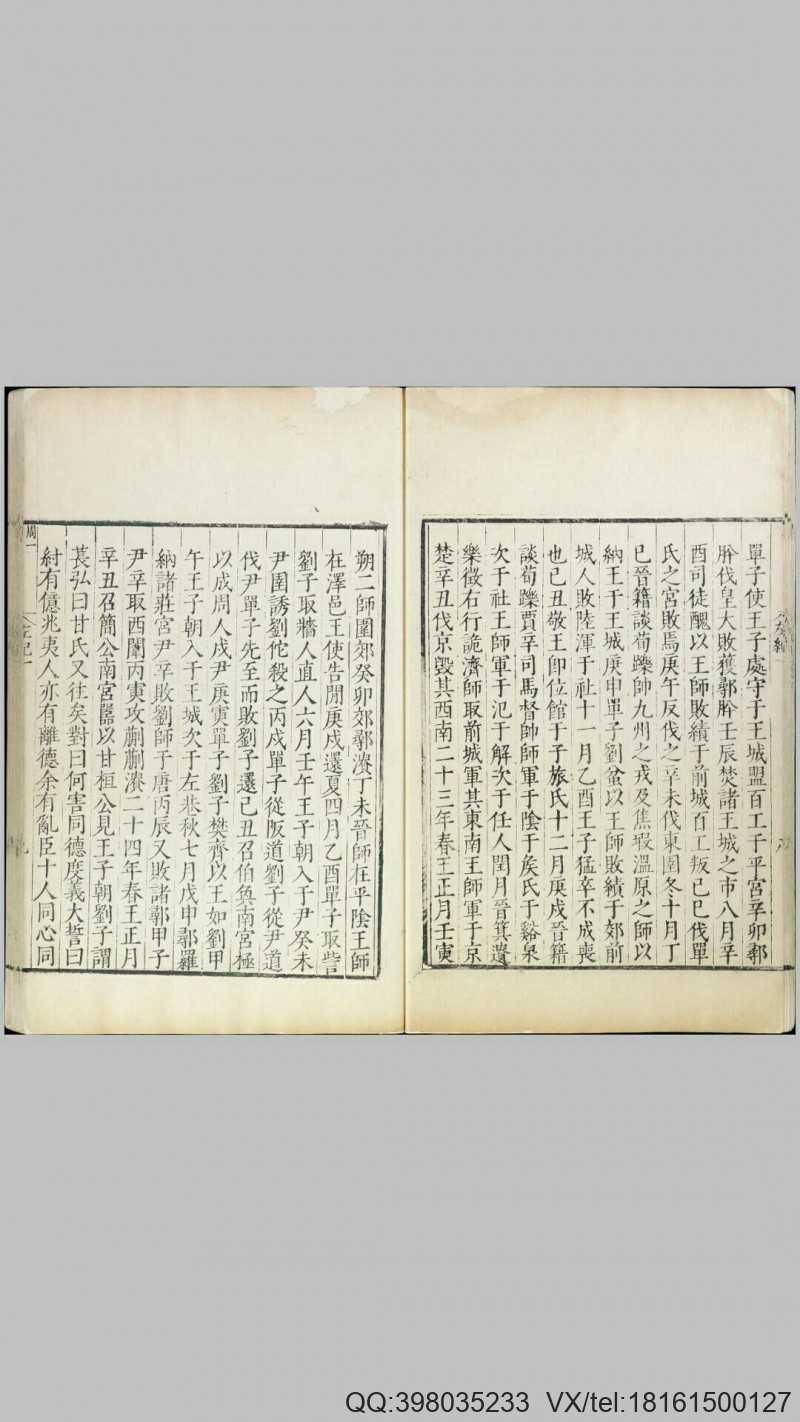 單子使王子處守于王城盟百工于平宮辛卯鄩
肸伐皇大敗獲鄩肸壬辰焚諸王城之市八月辛
酉司徒醜以王師敗績于前城百工叛己巳伐單
氏之宮敗焉庚午反伐之辛未伐東圉冬十月丁
巳晉籍談荀躒帥九州之戎及焦瑕溫原之師以
納王于王城庚申單子劉蚠以王師敗績于郊前
城人敗陸渾于社十一月乙酉王子猛卒不成喪
也己丑敬王卽位館于子旅氏十二月庚戌晉籍
談荀躒賈辛司馬督帥師軍于陰于矦氏于谿泉
次于社王師軍于氾于解次于任人閏月晉箕遺
樂徵右行詭濟師取前城軍其東南王師軍于京
楚辛丑伐京毀其西南二十三年春王正月壬寅
朔二師圍郊癸卯郊鄩潰丁未晉師在平隂王師
在澤邑王使告閒庚戌還夏四月乙酉單子取訾
劉子取牆人直人六月壬午王子朝入于尹癸未
尹圉誘劉佗殺之丙戌單子從阪道劉子從尹道
伐尹單子先至而敗劉子還己丑召伯奐南宮極
以成周人戍尹庚寅單子劉子樊齊以王如劉甲
午王子朝入于王城次于左巷秋七月戊申鄩羅
納諸莊宮尹辛敗劉師于唐丙辰又敗諸鄩甲子
尹辛取西闈丙寅攻蒯蒯潰二十四年春王正月
辛丑召簡公南宮嚚以甘桓公見王子朝劉子謂
萇弘曰甘氏又往矣對曰何害同德度義大誓曰
紂有億兆夷人亦有離德余有亂臣十人同心同
周一
QQ:398035233 VX/tel:18161500127